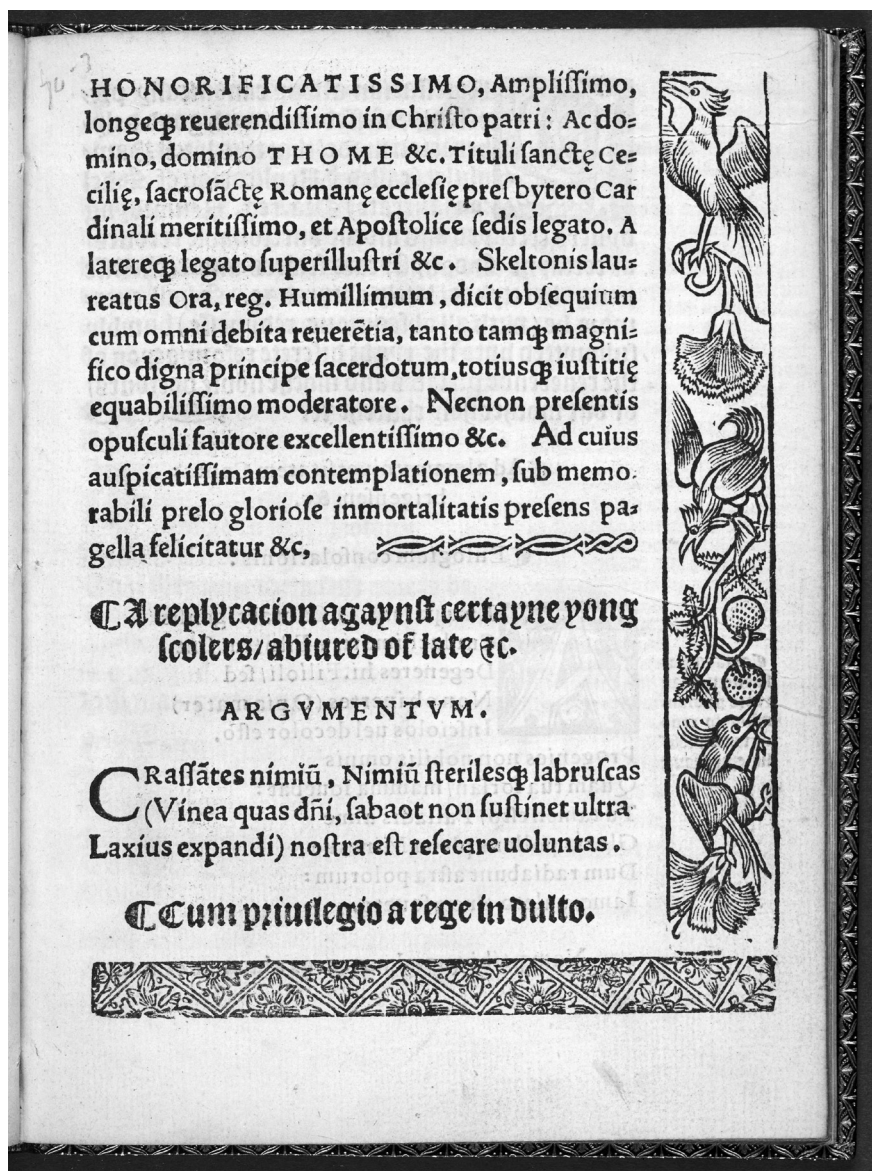 HONORIFICATISSIMO, Ampliſſimo,
longeqꝫ reuerendiſſimo in Chriſto patri: Ac do=
mino, domino THOME &c. Tituli ſanctę Ce=
cilię, ſacroſãctę Romanę eccleſię preſbytero Car
dinali meritiſſimo, et Apoſtolice ſedis legato. A
latereqꝫ legato ſuperilluſtri &c. Skeltonis lau=
reatus Ora, reg. Humillimum, dicit obſequium
cum omni debita reuerẽtia, tanto tamqꝫ magni=
fico digna principe ſacerdotum, totiusqꝫ iuſtitię
equabiliſſimo moderatore. Necnon preſentis
opuſculi fautore excellentiſſimo &c. Ad cuius
auſpicatiſſimam contemplationem, ſub memo.
rabili prelo glorioſe inmortalitatis preſens pa=
gella felicitatur &c,
¶A replycacion agaynſt certayne yong
ſcolers/abiured of late ⁊c.
ARGVMENTVM.
CRaſſãtes nimiũ, Nimiũ ſterileſqꝫ labruſcas
(Vinea quas dñi, ſabaot non ſuſtinet ultra
Laxius expandi) noſtra eſt reſecare uoluntas.
¶Cum priuilegio a rege in dulto.